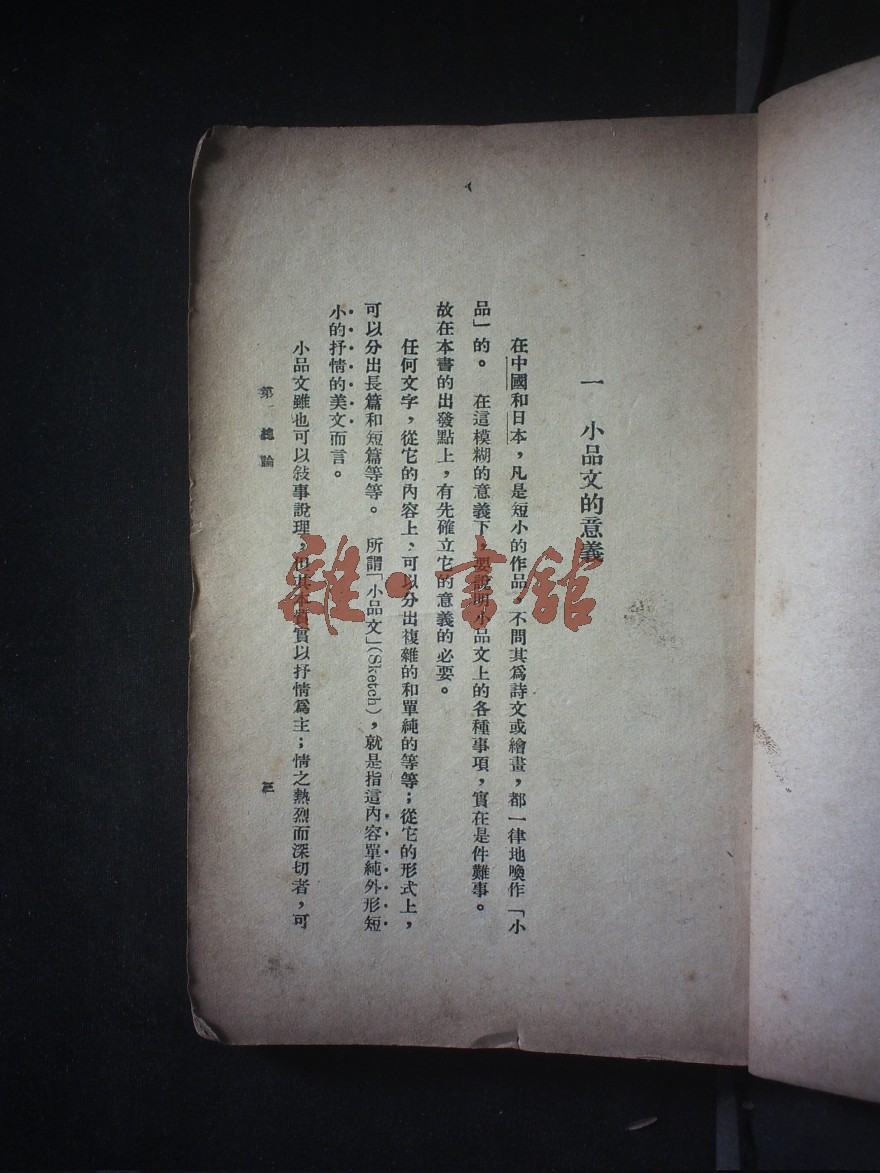 一　小品文的意義
在中國和日本，凡是短小的作品，不問其爲詩文或繪畫，都一律地喚作「小
品」的。　在這模糊的意義下，要說明小品文上的各種事項，實在是件難事。
故在本書的出發點上，有先確立它的意義的必要。
任何文字，從它的內容上，可以分出複雜的和單純的等等；從它的形式上，
可以分出長篇和短篇等等。　所謂「小品文」(Sketch)，就是指這內容單純外形短
小的抒情的美文而言。
小品文雖也可以敍事說理，但其本質實以抒情爲主；情之熱烈而深切者，可
第一　總論
三
雜·書館